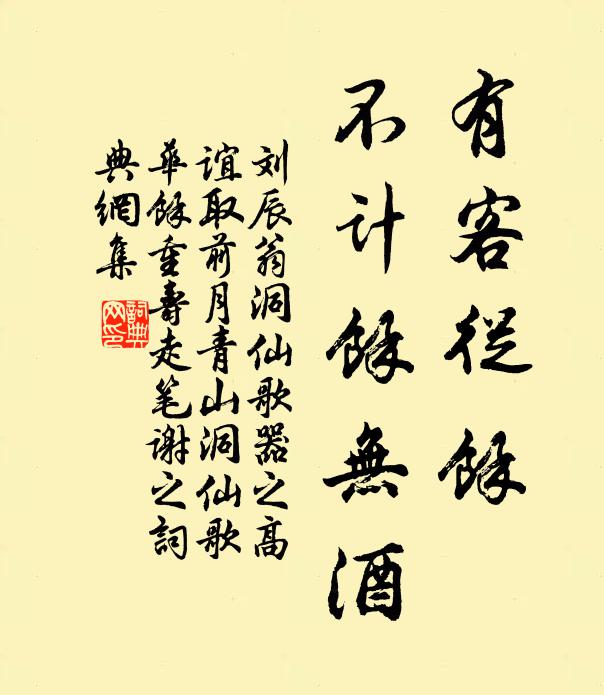 有客從餘
不計餘無酒
刘辰翁洞仙歌器之高
誼取前月青山洞仙歌
華餘重壽走笔谢之詞
典網集
詞典网印